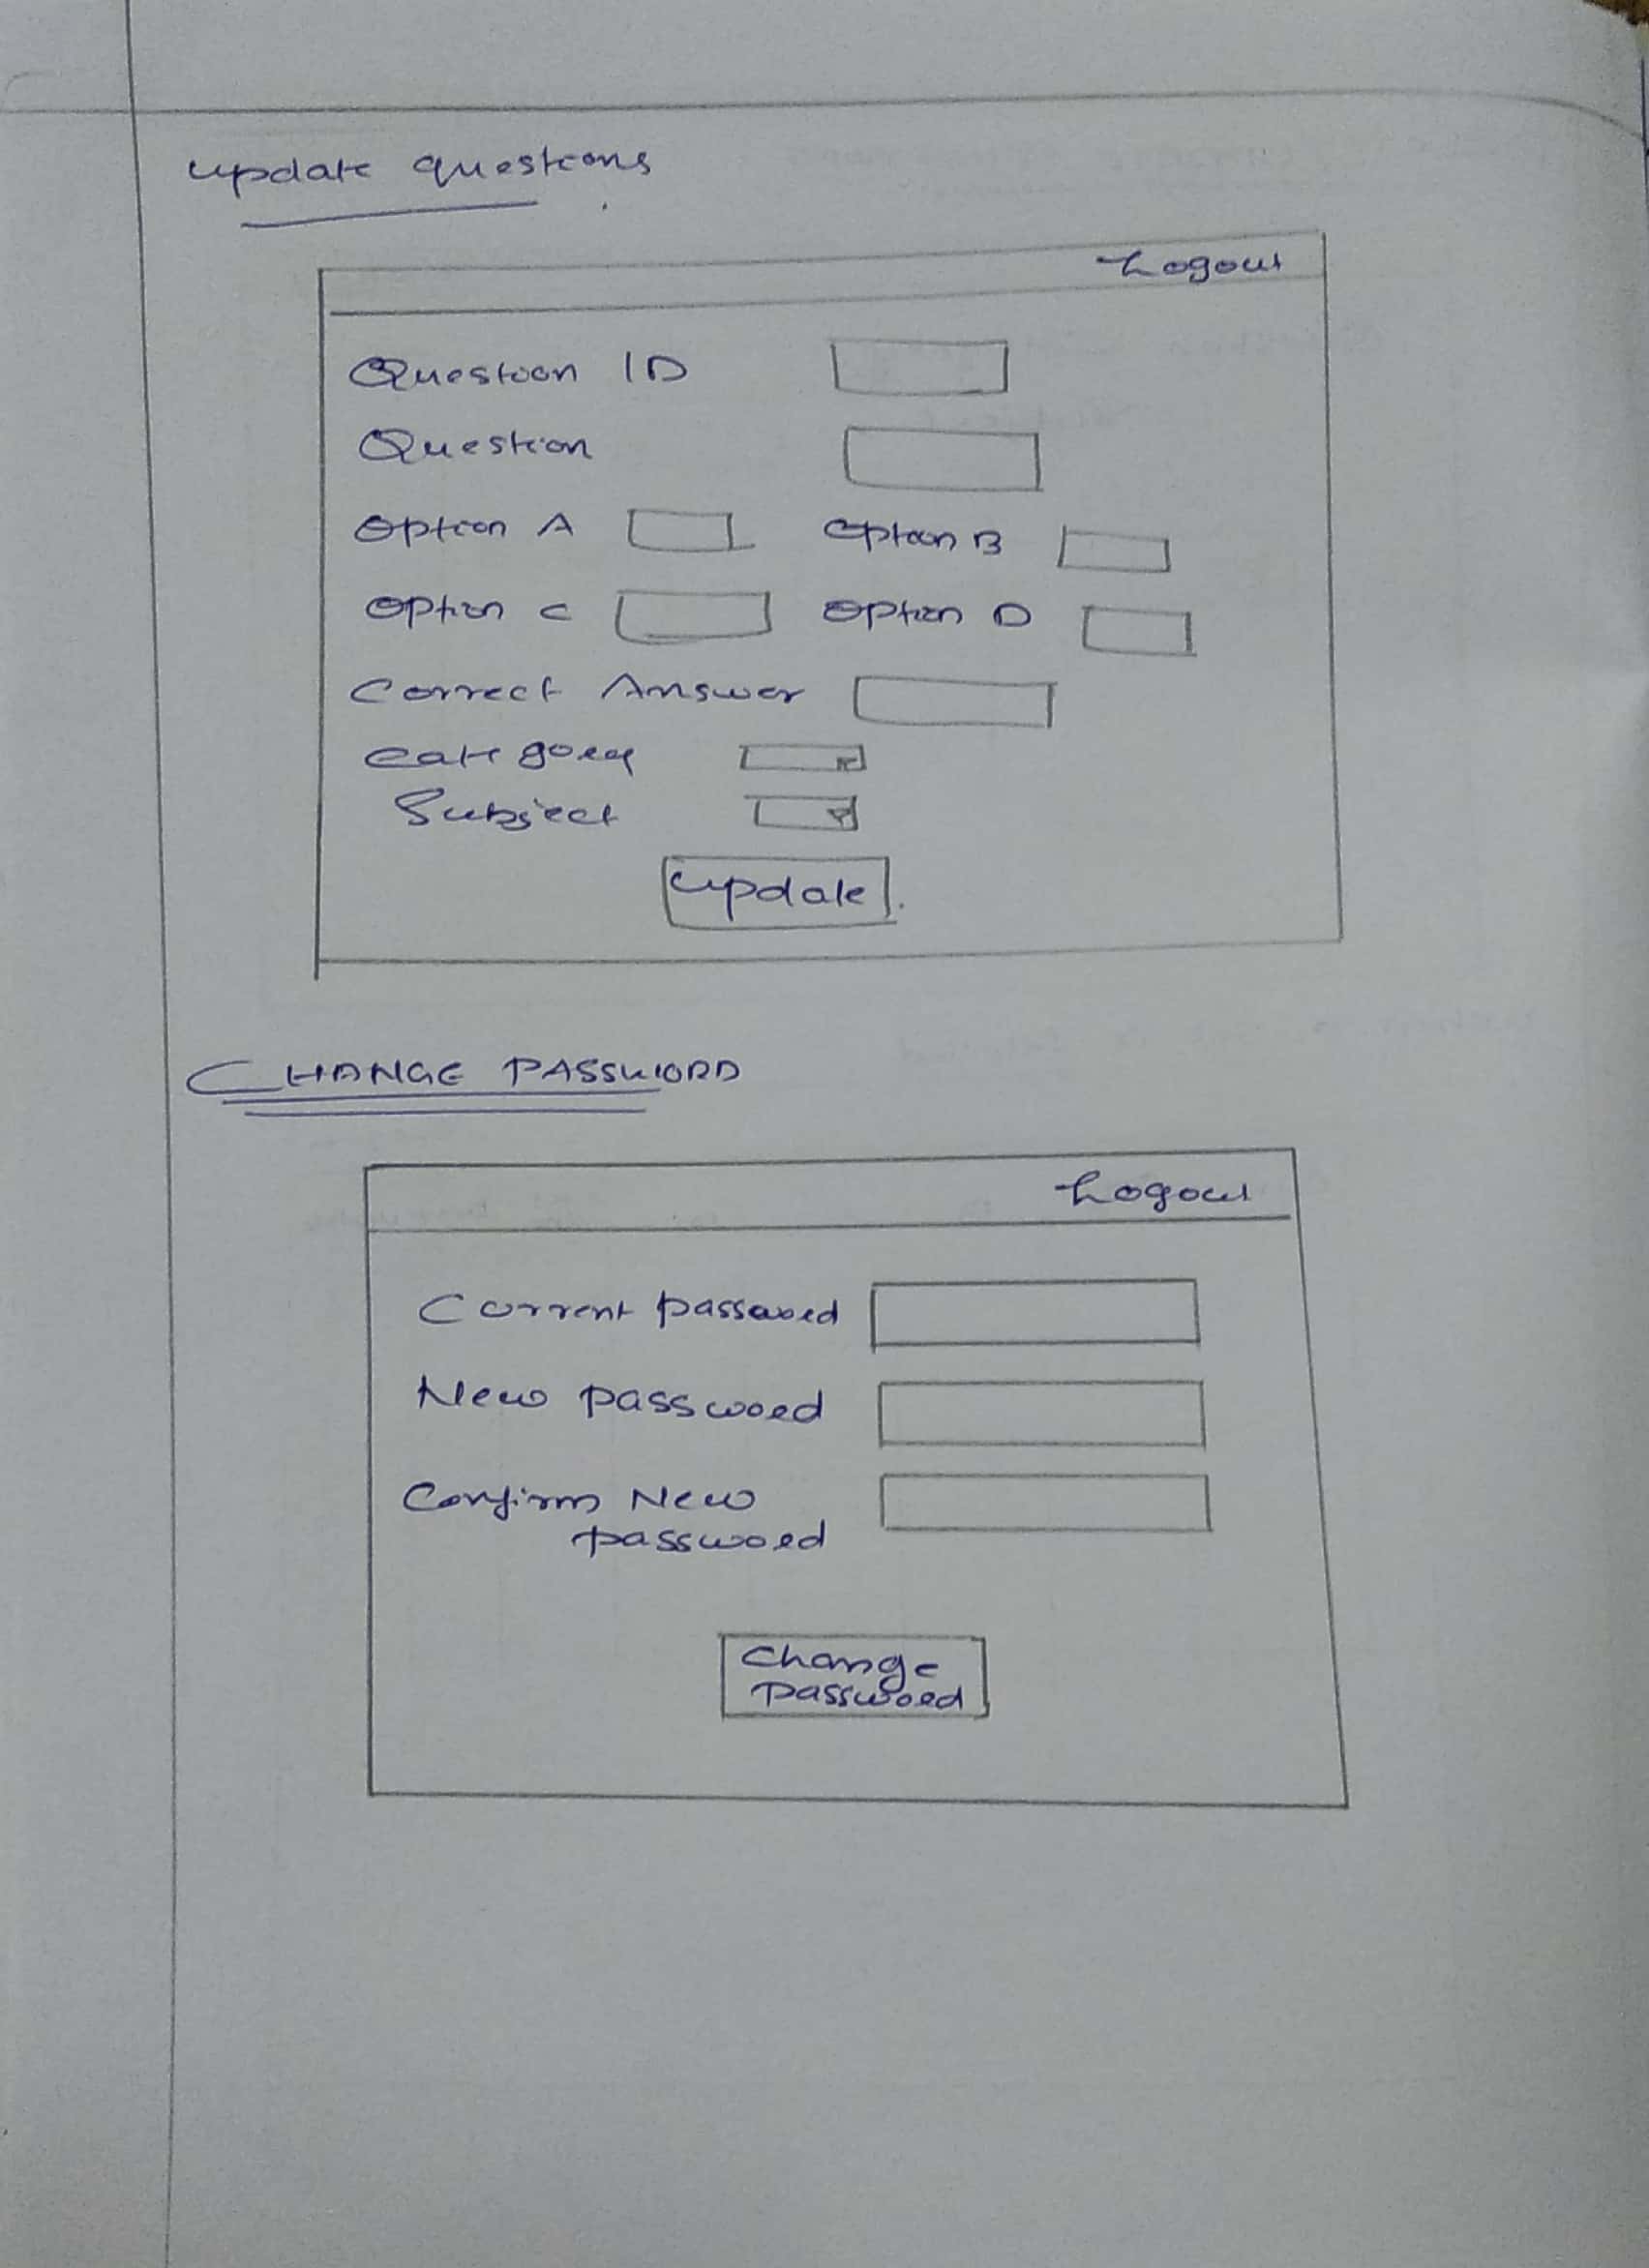 update questions
Logout
Question ID
Question
Option A Option B
Option C Option D
Correct Answer
Category
Subject
update
CHANGE PASSWORD
Logout
Current password
New password
Confirm New
password
Change
Password